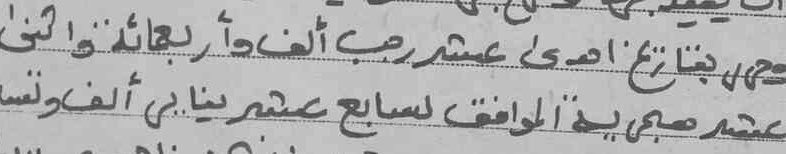 وحرر بتاريخ احدى عشر رجب ألف وأربعمائة واثنى
عشر هجرية الموافق لسابع عشر يناير ألف وتسا